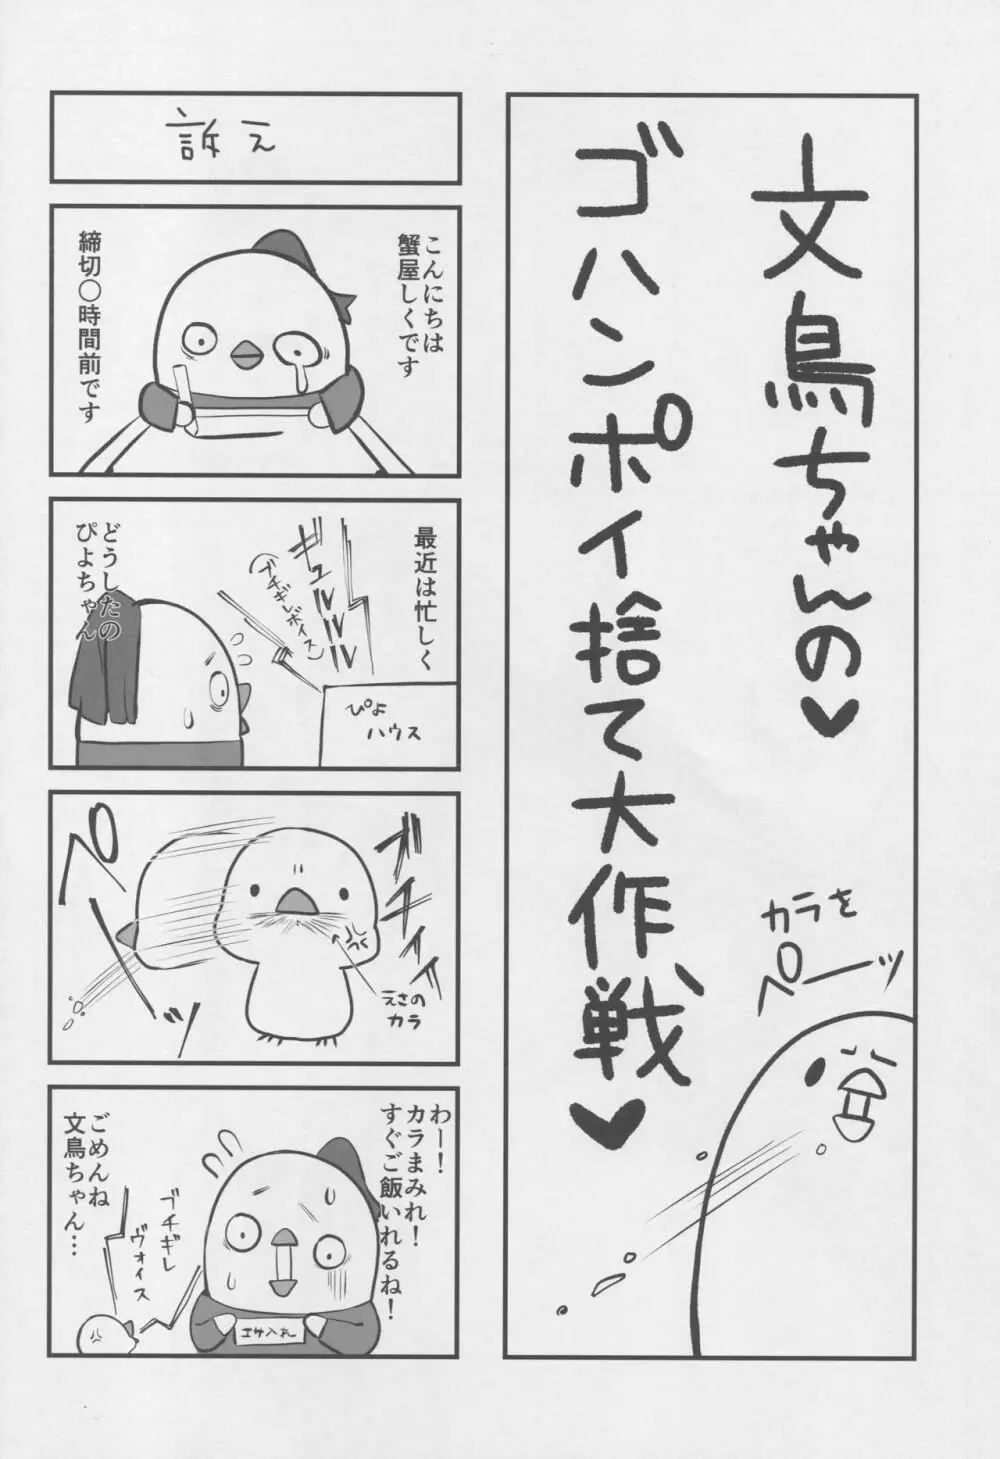 文鳥ちゃんの♥
ゴハンポイ捨て大作戦♥
カラを
ペーッ
訴え
こんにちは
蟹屋しくです
締切〇時間前です
最近は忙しく
ギュルルルル
(ブチギレボイス)
ぴよ
ハウス
どうしたの
ぴよちゃん
ガチィィィ
えさの
カラ
ペッ
わー!
カラまみれ!
すぐご飯いれるね!
エサ入れ
ブチギレ
ヴォイス
ごめんね
文鳥ちゃん…